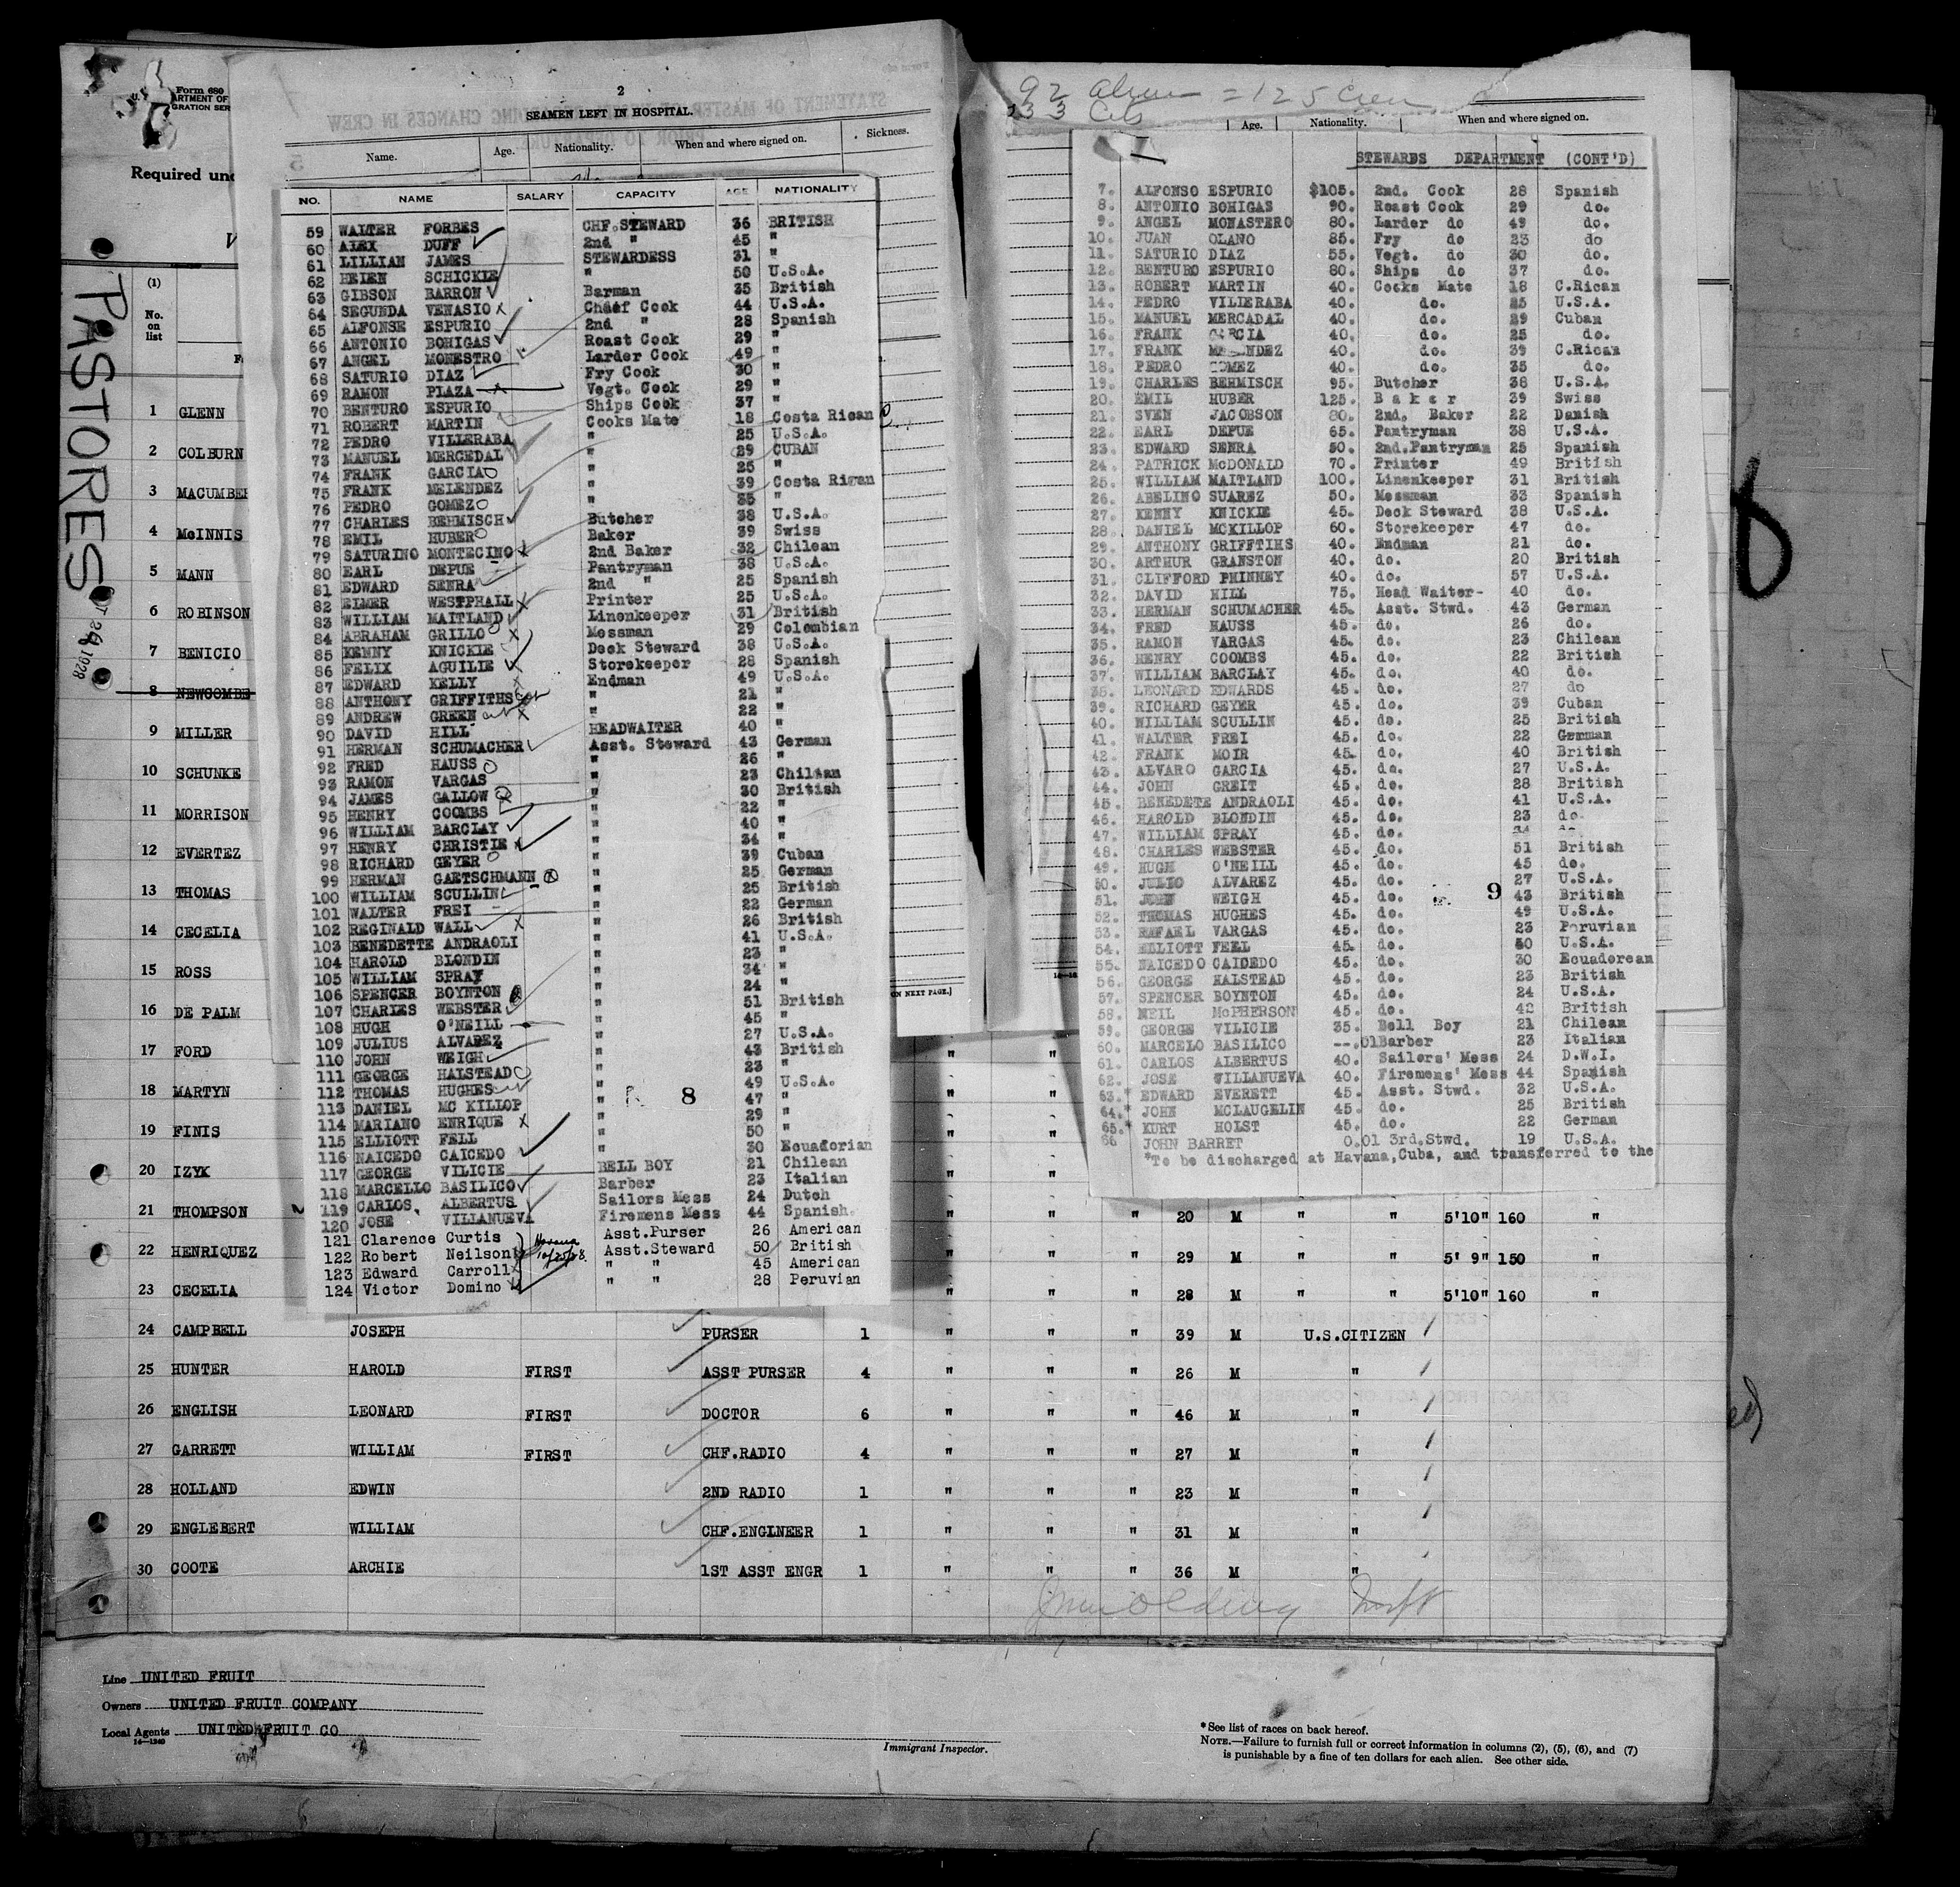 Form 680
ARTMENT OF
GRATION SER
Required und
V
PASTORES
(1)
No.
on
list
2
SEAMEN LEFT IN HOSPITAL.
Name. Age. Nationality. When and where signed on. Sickness.
NO. NAME SALARY CAPACITY AGE NATIONALITY
59 WALTER FORBES CHF.STEWARD 36 BRITISH
60 ALEX DUFF 2nd " 45 "
61 LILLIAN JAMES STEWARDESS 31 "
62 HELEN SCHICKIE " 50 U.S.A.
63 GIBSON BARRON Barman 35 British
64 SEGUNDA VENASIO Chief Cook 44 U.S.A.
65 ALFONSE ESPURIO 2nd " 28 Spanish
66 ANTONIO BOHIGAS Roast Cook 29 "
67 ANGEL MONESTRO Larder Cook 49 "
68 SATURIO DIAZ Fry Cook 30 "
69 RAMON PLAZA Vegt. Cook 29 "
70 BENTURO ESPURIO Ships Cook 37 "
71 ROBERT MARTIN Cooks Mate 18 Costa Rican
72 PEDRO VILLERABA " 25 U.S.A.
73 MANUEL MERCEDAL " 29 CUBAN
74 FRANK GARCIA " 25 "
75 FRANK MELENDEZ " 39 Costa Rican
76 PEDRO GOMEZ " 35 "
77 CHARLES BEHMISCH Butcher 38 U.S.A.
78 EMIL HUBER Baker 39 Swiss
79 SATURINO MONTECINO 2nd Baker 32 Chilean
80 EARL DEPUE Pantryman 38 U.S.A.
81 EDWARD SENRA 2nd " 25 Spanish
82 ELMER WESTPHALL Printer 25 U.S.A.
83 WILLIAM MAITLAND Linenkeeper 31 British
84 ABRAHAM GRILLO Messman 29 Colombian
85 KENNY KNICKIE Deck Steward 38 U.S.A.
86 FELIX AGUILIE Storekeeper 28 Spanish
87 EDWARD KELLY Endman 49 U.S.A.
88 ANTHONY GRIFFITHS " 21 "
89 ANDREW GREEN " 22 "
90 DAVID HILL HEADWAITER 40 "
91 HERMAN SCHUMACHER Asst. Steward 43 German
92 FRED HAUSS " 26 "
93 RAMON VARGAS " 23 Chilean
94 JAMES GALLOW " 30 British
95 HENRY COOMBS " 22 "
96 WILLIAM BARCLAY " 40 "
97 HENRY CHRISTIE " 34 "
98 RICHARD GEYER " 39 Cuban
99 HERMAN GAETSCHMANN " 25 German
100 WILLIAM SCULLIN " 25 British
101 WALTER FREI " 22 German
102 REGINALD WALL " 26 British
103 BENEDETTE ANDRAOLI " 41 U.S.A.
104 HAROLD BLONDIN " 23 "
105 WILLIAM SPRAY " 34 "
106 SPENCER BOYNTON " 24 "
107 CHARLES WEBSTER " 51 British
108 HUGH O'NEILL " 45 "
109 JULIUS ALVAREZ " 27 U.S.A.
110 JOHN WEIGH " 43 British
111 GEORGE HALSTEAD " 23 "
112 THOMAS HUGHES " 49 U.S.A.
113 DANIEL MC KILLOP " 47 "
114 MARIANO ENRIQUE " 29 "
115 ELLIOTT FELL " 50 "
116 NAICEDO CAICEDO " 30 Ecuadorian
117 GEORGE VILICIE BELL BOY 21 Chilean
118 MARCELLO BASILICO Barber 23 Italian
119 CARLOS ALBERTUS Sailors Mess 24 Dutch
120 JOSE VILLANUEVA Firemens Mess 44 Spanish
121 Clarence Curtis Asst.Purser 26 American
122 Robert Neilson Asst.Steward 50 British
123 Edward Carroll " " 45 American
124 Victor Domino " " 28 Peruvian
Havana
10/25/28.
8
ON NEXT PAGE.)
92 Aliens = 125 Crew
33 Cits
Age. Nationality. When and where signed on.
STEWARDS DEPARTMENT (CONT'D)
7. ALFONSO ESPURIO $105. 2nd. Cook 28 Spanish
8. ANTONIO BOHIGAS 90. Roast Cook 29 do.
9. ANGEL MONASTERO 80. Larder do 49 do.
10. JUAN OLANO 85. Fry do 23 do
11. SATURIO DIAZ 55. Vegt. do 30 do.
12. BENTURO ESPURIO 80. Ships do 37 do.
13. ROBERT MARTIN 40. Cooks Mate 18 C.Rican
14. PEDRO VILLERABA 40. do. 25 U.S.A.
15. MANUEL MERCADAL 40. do. 29 Cuban
16. FRANK GARCIA 40. do. 25 do.
17. FRANK 40. do. 39 C.Rican
18. PEDRO GOMEZ 40. do. 35 do.
19. CHARLES BEHMISCH 95. Butcher 38 U.S.A.
20. EMIL HUBER 125. Baker 39 Swiss
21. SVEN JACOBSON 80. 2nd. Baker 22 Danish
22. EARL DEPUE 65. Pantryman 38 U.S.A.
23. EDWARD SENRA 50. 2nd.Pantryman 25 Spanish
24. PATRICK McDONALD 70. Printer 49 British
25. WILLIAM MAITLAND 100. Linenkeeper 31 British
26. ABELINO SUAREZ 50. Messman 33 Spanish
27. KENNY KNICKIE 45. Deck Steward 38 U.S.A.
28. DANIEL MCKILLOP 60. Storekeeper 47 do.
29. ANTHONY GRIFFTIHS 40. Endman 21 do.
30. ARTHUR GRANSTON 40. do. 20 British
31. CLIFFORD PHINNEY 40. do. 57 U.S.A.
32. DAVID HILL 75. Head Waiter- 40 do.
33. HERMAN SCHUMACHER 45. Asst. Stwd. 43 German
34. FRED HAUSS 45. do. 26 do.
35. RAMON VARGAS 45. do. 23 Chilean
36. HENRY COOMBS 45. do. 22 British
37. WILLIAM BARCLAY 45. do. 40 do.
38. LEONARD EDWARDS 45. do. 27 do
39. RICHARD GEYER 45. do. 39 Cuban
40. WILLIAM SCULLIN 45. do. 25 British
41. WALTER FREI 45. do. 22 German
42. FRANK MOIR 45. do. 40 British
43. ALVARO GARCIA 45. do. 27 U.S.A.
44. JOHN GREIT 45. do. 28 British
45. BENEDETE ANDRAOLI 45. do. 41 U.S.A.
46. HAROLD BLONDIN 45. do. 23 do.
47. WILLIAM SPRAY 45. do. 34
48. CHARLES WEBSTER 45. do. 51 British
49. HUGH O'NEILL 45. do. 45 do.
50. JULIO ALVAREZ 45. do. 27 U.S.A.
51. JOHN WEIGH 45. do. 43 British
52. THOMAS HUGHES 45. do. 49 U.S.A.
53. RAFAEL VARGAS 45. do. 23 Peruvian
54. ELLIOTT FELL 45. do. 50 U.S.A.
55. NAICEDO CAICEDO 45. do. 30 Ecuadorean
56. GEORGE HALSTEAD 45. do. 23 British
57. SPENCER BOYNTON 45. do. 24 U.S.A.
58. NEIL McPHERSON 45. do. 42 British
59. GEORGE VILICIE 35. Bell Boy 21 Chilean
60. MARCELO BASILICO --.01 Barber 23 Italian
61. CARLOS ALBERTUS 40. Sailors' Mess 24 D.W.I.
62. JOSE VILLANUEVA 40. Firemens' Mess 44 Spanish
63.* EDWARD EVERETT 45. Asst. Stwd. 32 U.S.A.
64.* JOHN MCLAUGELIN 45. do. 25 British
65.* KURT HOLST 45. do. 22 German
66 JOHN BARRET 0.01 3rd.Stwd. 19 U.S.A.
*To be discharged at Havana,Cuba, and transferred to the
9
1 GLENN
2 COLBURN
3 MACUMBER
4 McINNIS
5 MANN
6 ROBINSON
7 BENICIO
8 NEWCOMBE
9 MILLER
10 SCHUNKE
11 MORRISON
12 EVERTEZ
13 THOMAS
14 CECELIA
15 ROSS
16 DE PALM
17 FORD " "
18 MARTYN " "
19 FINIS " "
20 IZYK " "
21 THOMPSON " " " 20 M " " 5'10" 160 "
22 HENRIQUEZ " " " 29 M " " 5' 9" 150 "
23 CECELIA " " " 28 M " " 5'10" 160 "
24 CAMPBELL JOSEPH PURSER 1 " " " 39 M U.S.CITIZEN
25 HUNTER HAROLD FIRST ASST PURSER 4 " " " 26 M "
26 ENGLISH LEONARD FIRST DOCTOR 6 " " " 46 M "
27 GARRETT WILLIAM FIRST CHF.RADIO 4 " " " 27 M "
28 HOLLAND EDWIN 2ND RADIO 1 " " " 23 M "
29 ENGLEBERT WILLIAM CHF.ENGINEER 1 " " " 31 M "
30 COOTE ARCHIE 1ST ASST ENGR 1 " " " 36 M "
Line UNITED FRUIT
Owners UNITED FRUIT COMPANY
Local Agents UNITED FRUIT CO
14—1240
Immigrant Inspector.
*See list of races on back hereof.
NOTE.—Failure to furnish full or correct information in columns (2), (5), (6), and (7)
is punishable by a fine of ten dollars for each alien. See other side.